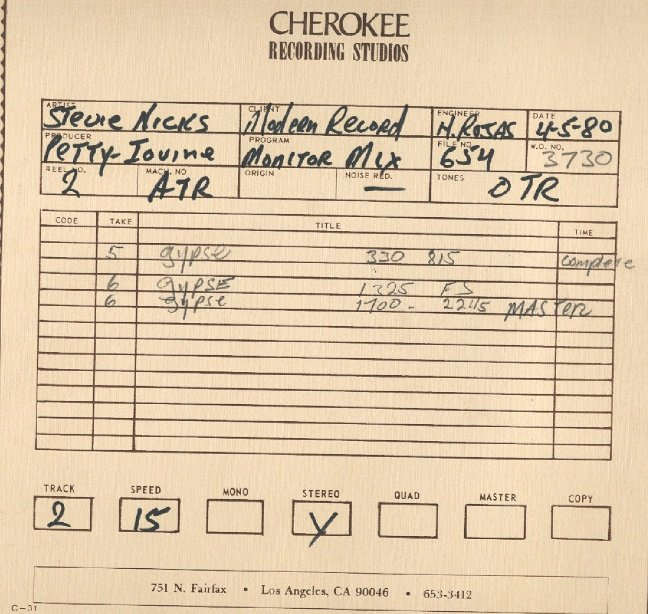 CHEROKEE
RECORDING STUDIOS
ARTIST CLIENT ENGINEER DATE
Stevie Nicks Modern Record H. ROJAS 4-5-80
PRODUCER PROGRAM FILE NO. W.O. NO.
Petty-Iovine MONITOR MIX 654 3730
REEL NO. MACH. NO ORIGIN NOISE RED. TONES
2 ATR — OTR
CODE TAKE TITLE TIME
5 gypse 330 815 complete
6 gypse 1325 FS
6 gypse 1700 - 2245 MASTER
TRACK SPEED MONO STEREO QUAD MASTER COPY
2 15 Y
751 N. Fairfax • Los Angeles, CA 90046 • 653-3412
C-31